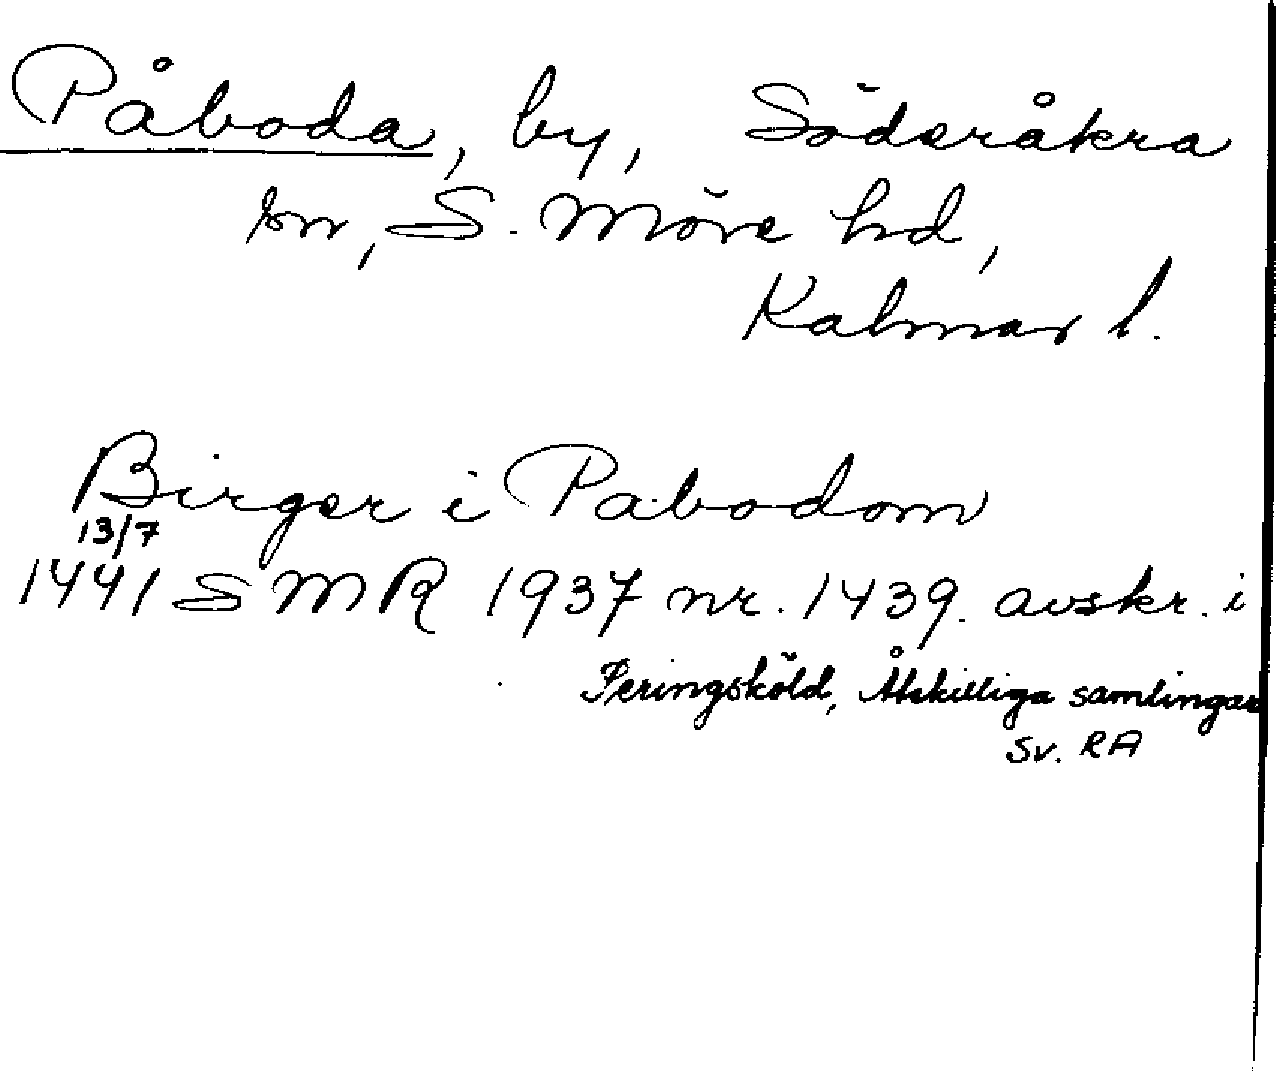 Påboda, by, Söderåkra
sn, S. Möre hd,
Kalmar l.
Birger i Pabodom
13/7
1441 SMR 1937 nr. 1439. avskr. i
Peringsköld, Åtskilliga samlingar
Sv. RA